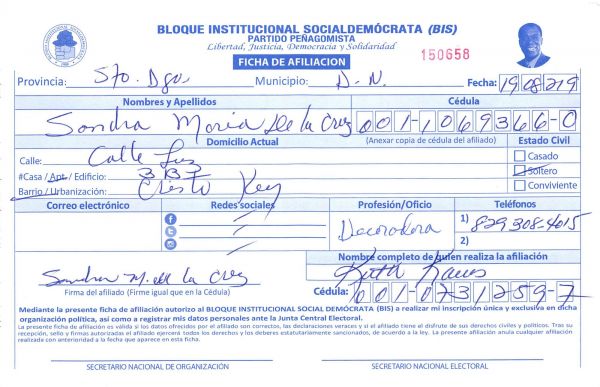 BLOQUE INSTITUCIONAL SOCIALDEMÓCRATA (BIS)
PARTIDO PEÑAGOMISTA
Libertad, Justicia, Democracia y Solidaridad
FICHA DE AFILIACION
150658
Provincia: Sto. Dgo. Municipio: D.N. Fecha: 19 08 219
Nombres y Apellidos Cédula
Sandra Maria De la Cruz 001-1069366-0
Domicilio Actual (Anexar copia de cédula del afiliado) Estado Civil
Calle: Calle Luz Casado
#Casa / Apt / Edificio: 3B1 Soltero
Barrio / Urbanización: Cristo Rey Conviviente
Correo electrónico Redes sociales Profesión/Oficio Teléfonos
Decoradora 1) 829 308-4015
2)
Nombre completo de quien realiza la afiliación
Sandra M. de la Cruz Ruth
Firma del afiliado (Firme igual que en la Cédula) Cédula: 001-0731259-7
Mediante la presente ficha de afiliación autorizo al BLOQUE INSTITUCIONAL SOCIAL DEMÓCRATA (BIS) a realizar mi inscripción única y exclusiva en dicha
organización política, así como a registrar mis datos personales ante la Junta Central Electoral.
La presente ficha de afiliación es válida si los datos ofrecidos por el afiliado son correctos, las declaraciones veraces y si el afiliado tiene el disfrute de sus derechos civiles y políticos. Tras su
recepción, sello y firmas autorizadas el afiliado ejercerá todos los derechos y los deberes estatutariamente sancionados, de acuerdo a la ley. La presente afiliación anula cualquier afiliación
realizada con anterioridad a la fecha que aparece en esta ficha.
SECRETARIO NACIONAL DE ORGANIZACIÓN SECRETARIO NACIONAL ELECTORAL